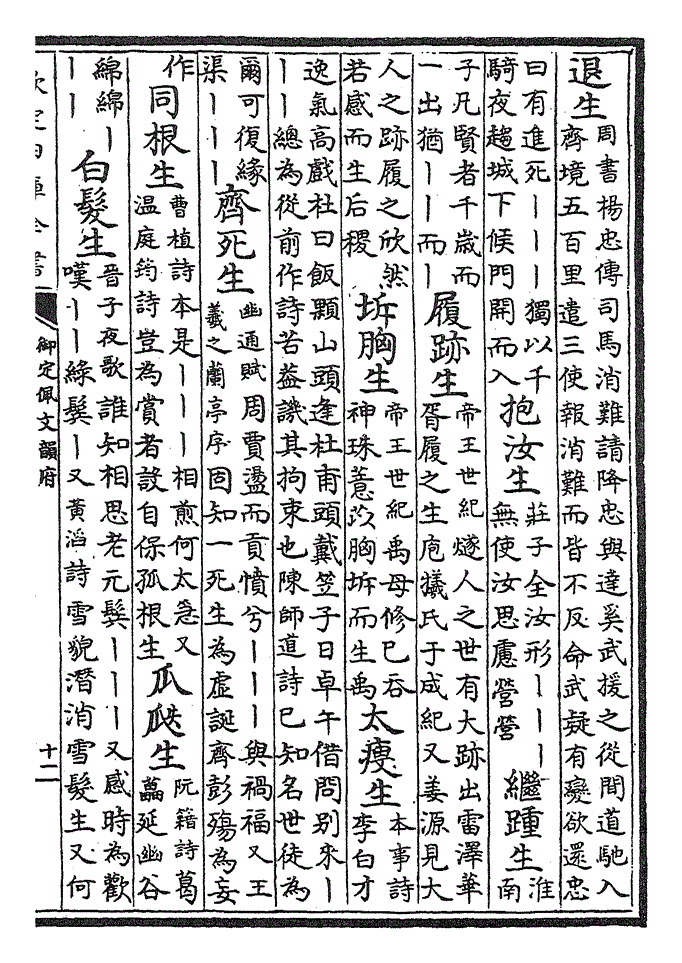 退生周書楊忠傳司馬消難請降忠與達奚武援之從間道馳入
齊境五百里遣三使報消難而皆不反命武疑有變欲還忠
曰有進死｜｜｜獨以千
騎夜趨城下候門開而入
抱汝生莊子全汝形｜｜｜
無使汝思慮營營
繼踵生淮
南
子凡賢者千歲而
一出猶｜｜而｜
履跡生帝王世紀燧人之世有大跡出雷澤華
胥履之生庖犧氏于成紀又姜源見大
人之跡履之欣然
若感而生后稷
坼胸生帝王世紀禹母修已吞
神珠薏苡胸坼而生禹
太瘦生本事詩
李白才
逸氣高戲杜曰飯顆山頭逢杜甫頭戴笠子日卓午借問别來｜
｜｜總為從前作詩苦葢譏其拘束也陳師道詩已知名世徒為
爾可復緣
渠｜｜｜
齊死生幽通賦周賈盪而貢憤兮｜｜｜與禍福又王
羲之蘭亭序固知一死生為虛誕齊彭殤為妄
作
同根生曹植詩本是｜｜｜相煎何太急又
温庭筠詩豈為賞者設自保孤根生
瓜瓞生阮籍詩葛
藟延幽谷
綿綿｜
｜｜
白髮生晉子夜歌誰知相思老元鬢｜｜｜又感時為歡
嘆｜｜綠鬢｜又黃滔詩雪貌潛消雪髮生又何
欽定四庫全書
御定佩文韻府
十二